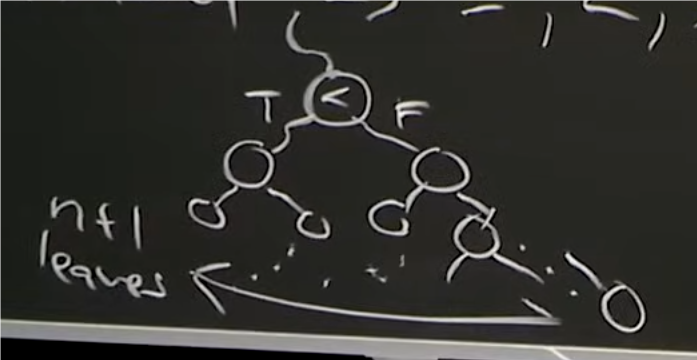 T < F
n+1
leaves